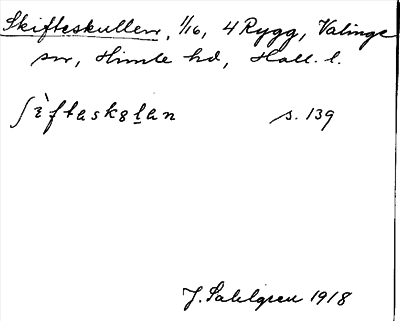 Skifteskullen, 1/16, 4 Rygg, Valinge
sn, Himle hd, Hall. l.
ʃèftaskɵlan s. 139
J. Sahlgren 1918